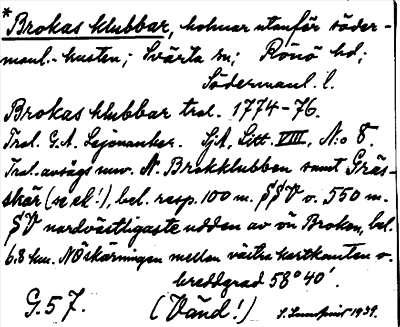 * Brokas klubbar, holmar utanför söder-
manl.-kusten; Svärta sn; Rönö hd;
Södermanl. l.
Brokas klubbar trol. 1774-76.
Trol. G.A. Lejonanker. SjA, Litt. VIII, N:o 8.
Trol. avsågs nuv. N. Brokklubben samt Gräs-
skär (se el.!), bel. resp. 100 m. SSV o. 550 m.
SV nordvästligaste udden av ön Broken, bel.
6.8 km. NÖ skärningen mellan västra kartkanten o.
breddgrad 58° 40'.
G.57. (Vänd!) 1939.